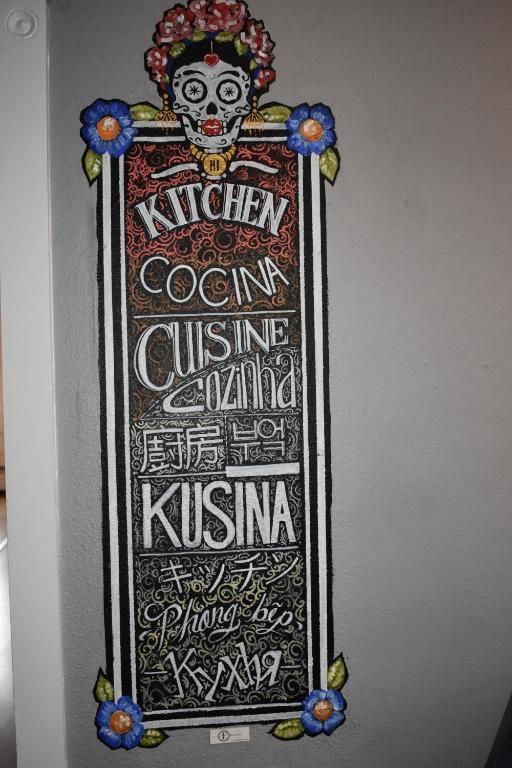 HI
KITCHEN
COCINA
CUISINE
Cozinha
廚房 부엌
KUSINA
キッチン
Phòng bếp
Кухня